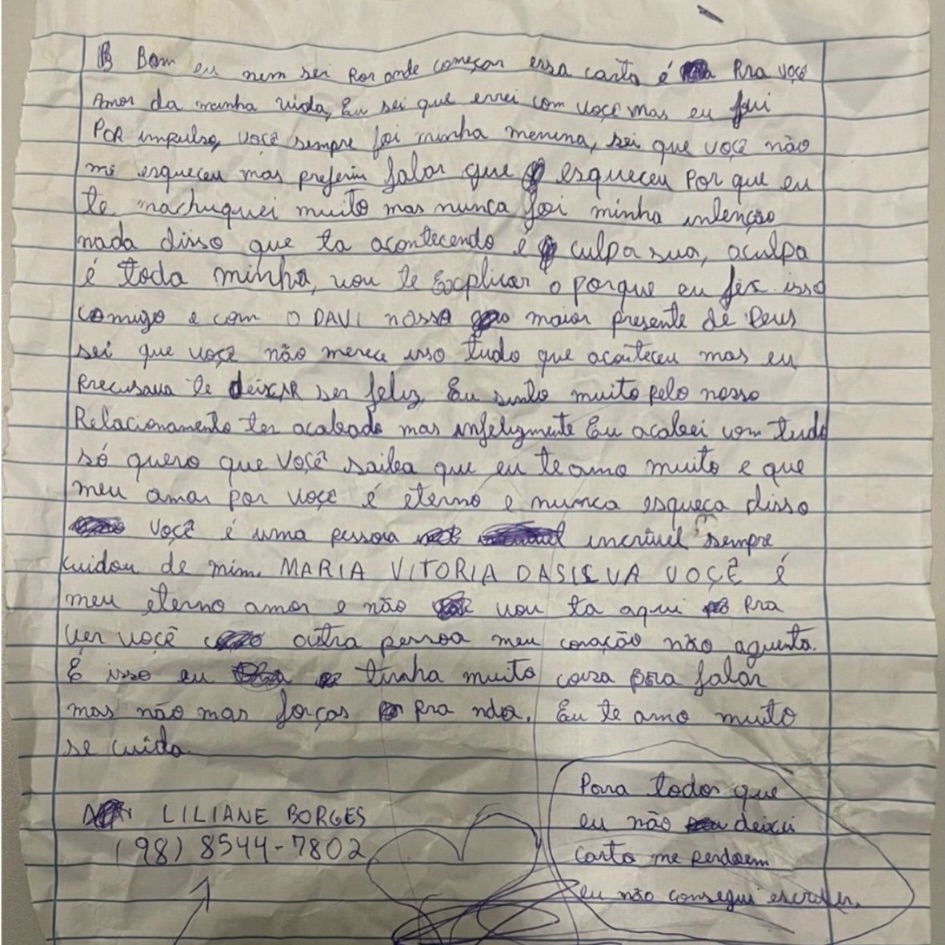 Bom eu nem sei por onde começar essa carta é pra voçê
Amor da minha vida, Eu sei que errei com voçê mas eu fui
POR impulso, você sempre foi minha menina, sei que você não
me esqueceu mas preferiu falar que esqueceu Por que eu
te machuquei muito mas nunca foi minha intenção
nada disso que ta acontecendo é culpa sua, aculpa
é toda minha, vou te Explicar o porque eu fez isso
comigo e com O DAVI nosso maior presente de Deus
sei que voçê não merece isso tudo que aconteceu mas eu
Precusava te deixar ser feliz, Eu sinto muito pelo nosso
Relacionamento ter acabado mas infelizmente Eu acabei com tudo
só quero que Voçê saiba que eu te amo muito e que
meu amor por voçê é eterno e nunca esqueça disso
você é uma pessoa incrivel sempre
cuidou de mim. MARIA VITORIA DASILVA VOÇÊ É
meu eterno amor e não vou ta aqui pra
ver você outra pessoa meu coração não aguenta.
É isso eu tinha muito coisa para falar
mas não mas forças pra nda. Eu te amo muito
se cuida
LILIANE BORGES
(98) 8544-7802
Para todos que
eu não deixei
carta me perdoem
eu não consegui escrever.